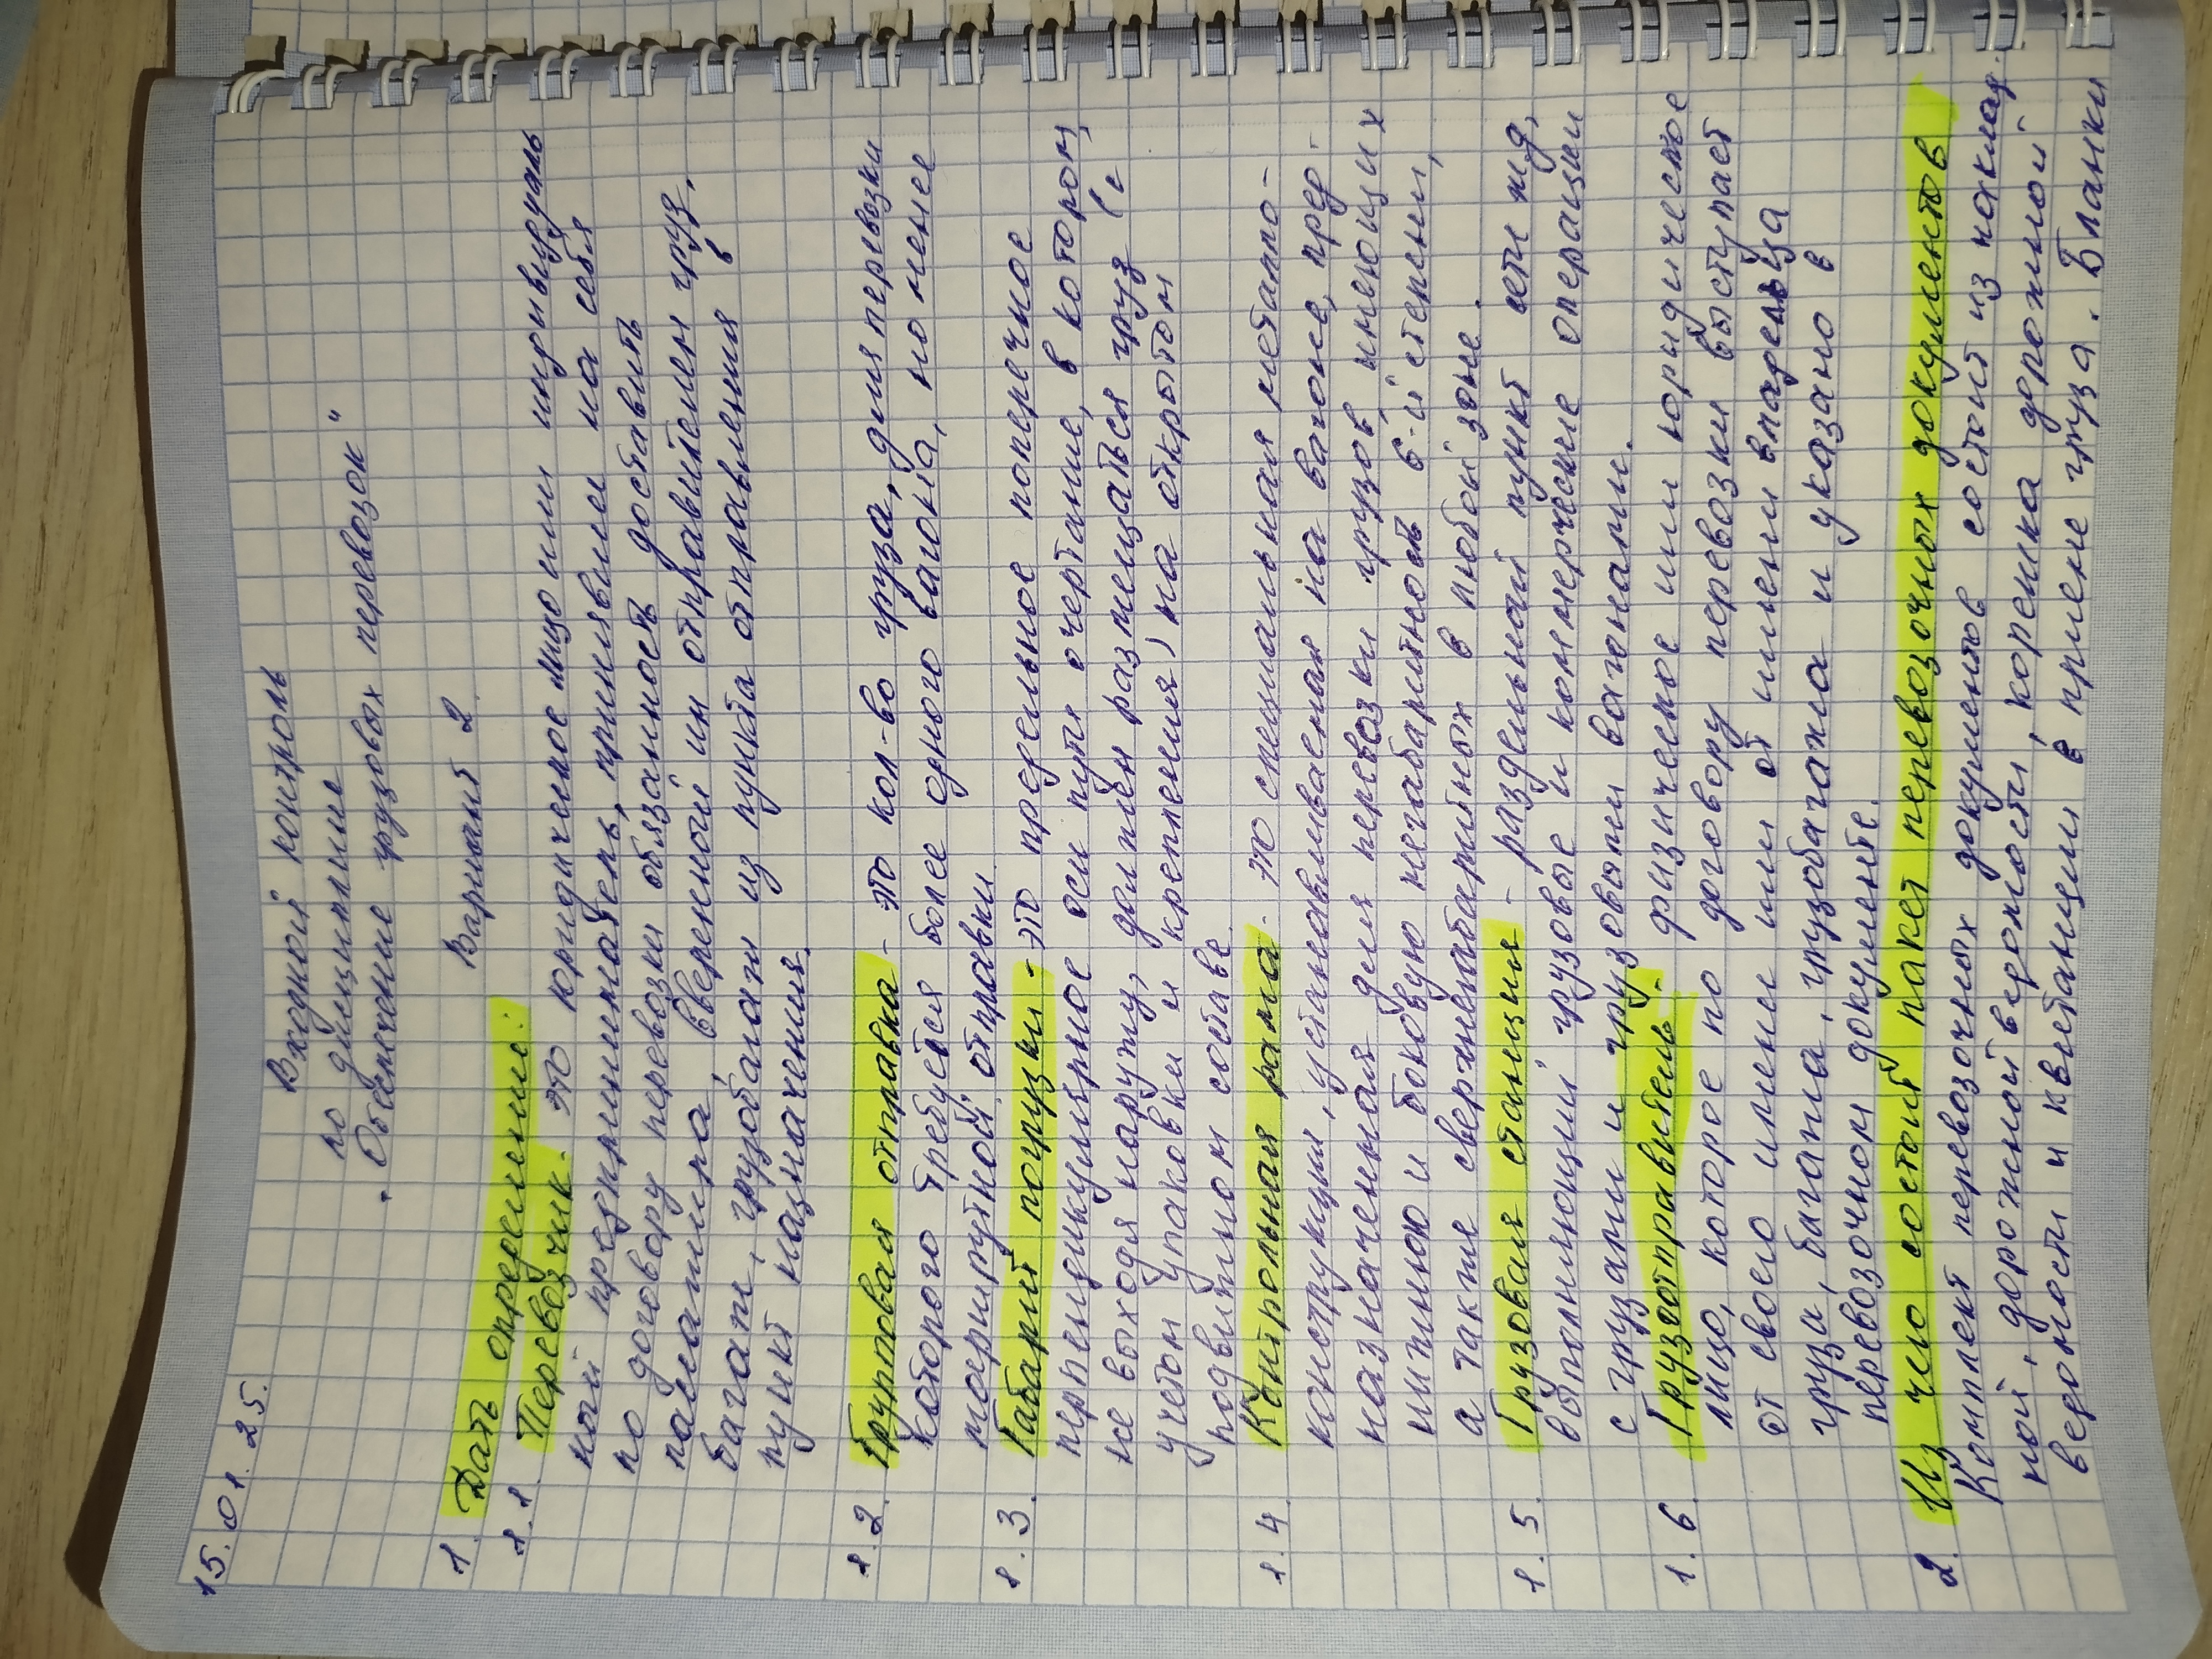 15.01.25.
Входной контроль
по дисциплине
"Обеспечение грузовых перевозок"
Вариант 2.
1. Дать определение:
1.1. Перевозчик - это юридическое лицо или индивидуаль
ный предприниматель, принявшие на себя
по договору перевозки обязанность доставить
пассажира, вверенный им отправителем груз,
багаж, грузобагаж из пункта отправления в
пункт назначения.
1.2. Групповая отправка - это кол-во груза, для перевозки
которого требуется более одного вагона, но менее
маршрутной отправки
1.3. Габарит погрузки - это предельное поперечное
перпендикулярное оси пути очертание, в котором,
не выходя наружу, должен размещаться груз (с
учетом упаковки и крепления) на открытом
подвижном составе.
1.4. Контрольная рама - это специальная металло-
конструкция, устанавливаемая на вагоне, пред-
назначенная для перевозки грузов, имеющих
нижнюю и боковую негабаритность 6-й степени,
а также сверхнегабаритных в любой зоне.
1.5. Грузовая станция - раздельный пункт сети жд,
выполняющий грузовые и коммерческие операции
с грузами и грузовыми вагонами.
1.6. Грузоотправитель - физическое или юридическое
лицо, которое по договору перевозки выступает
от своего имени или от имени владельца
груза, багажа, грузобагажа и указано в
перевозочном документе.
2. Из чего состоит пакет перевозочных документов
Комплект перевозочных документов состоит из наклад-
ной, дорожной ведомости, корешка дорожной
ведомости и квитанции в приеме груза. Бланки